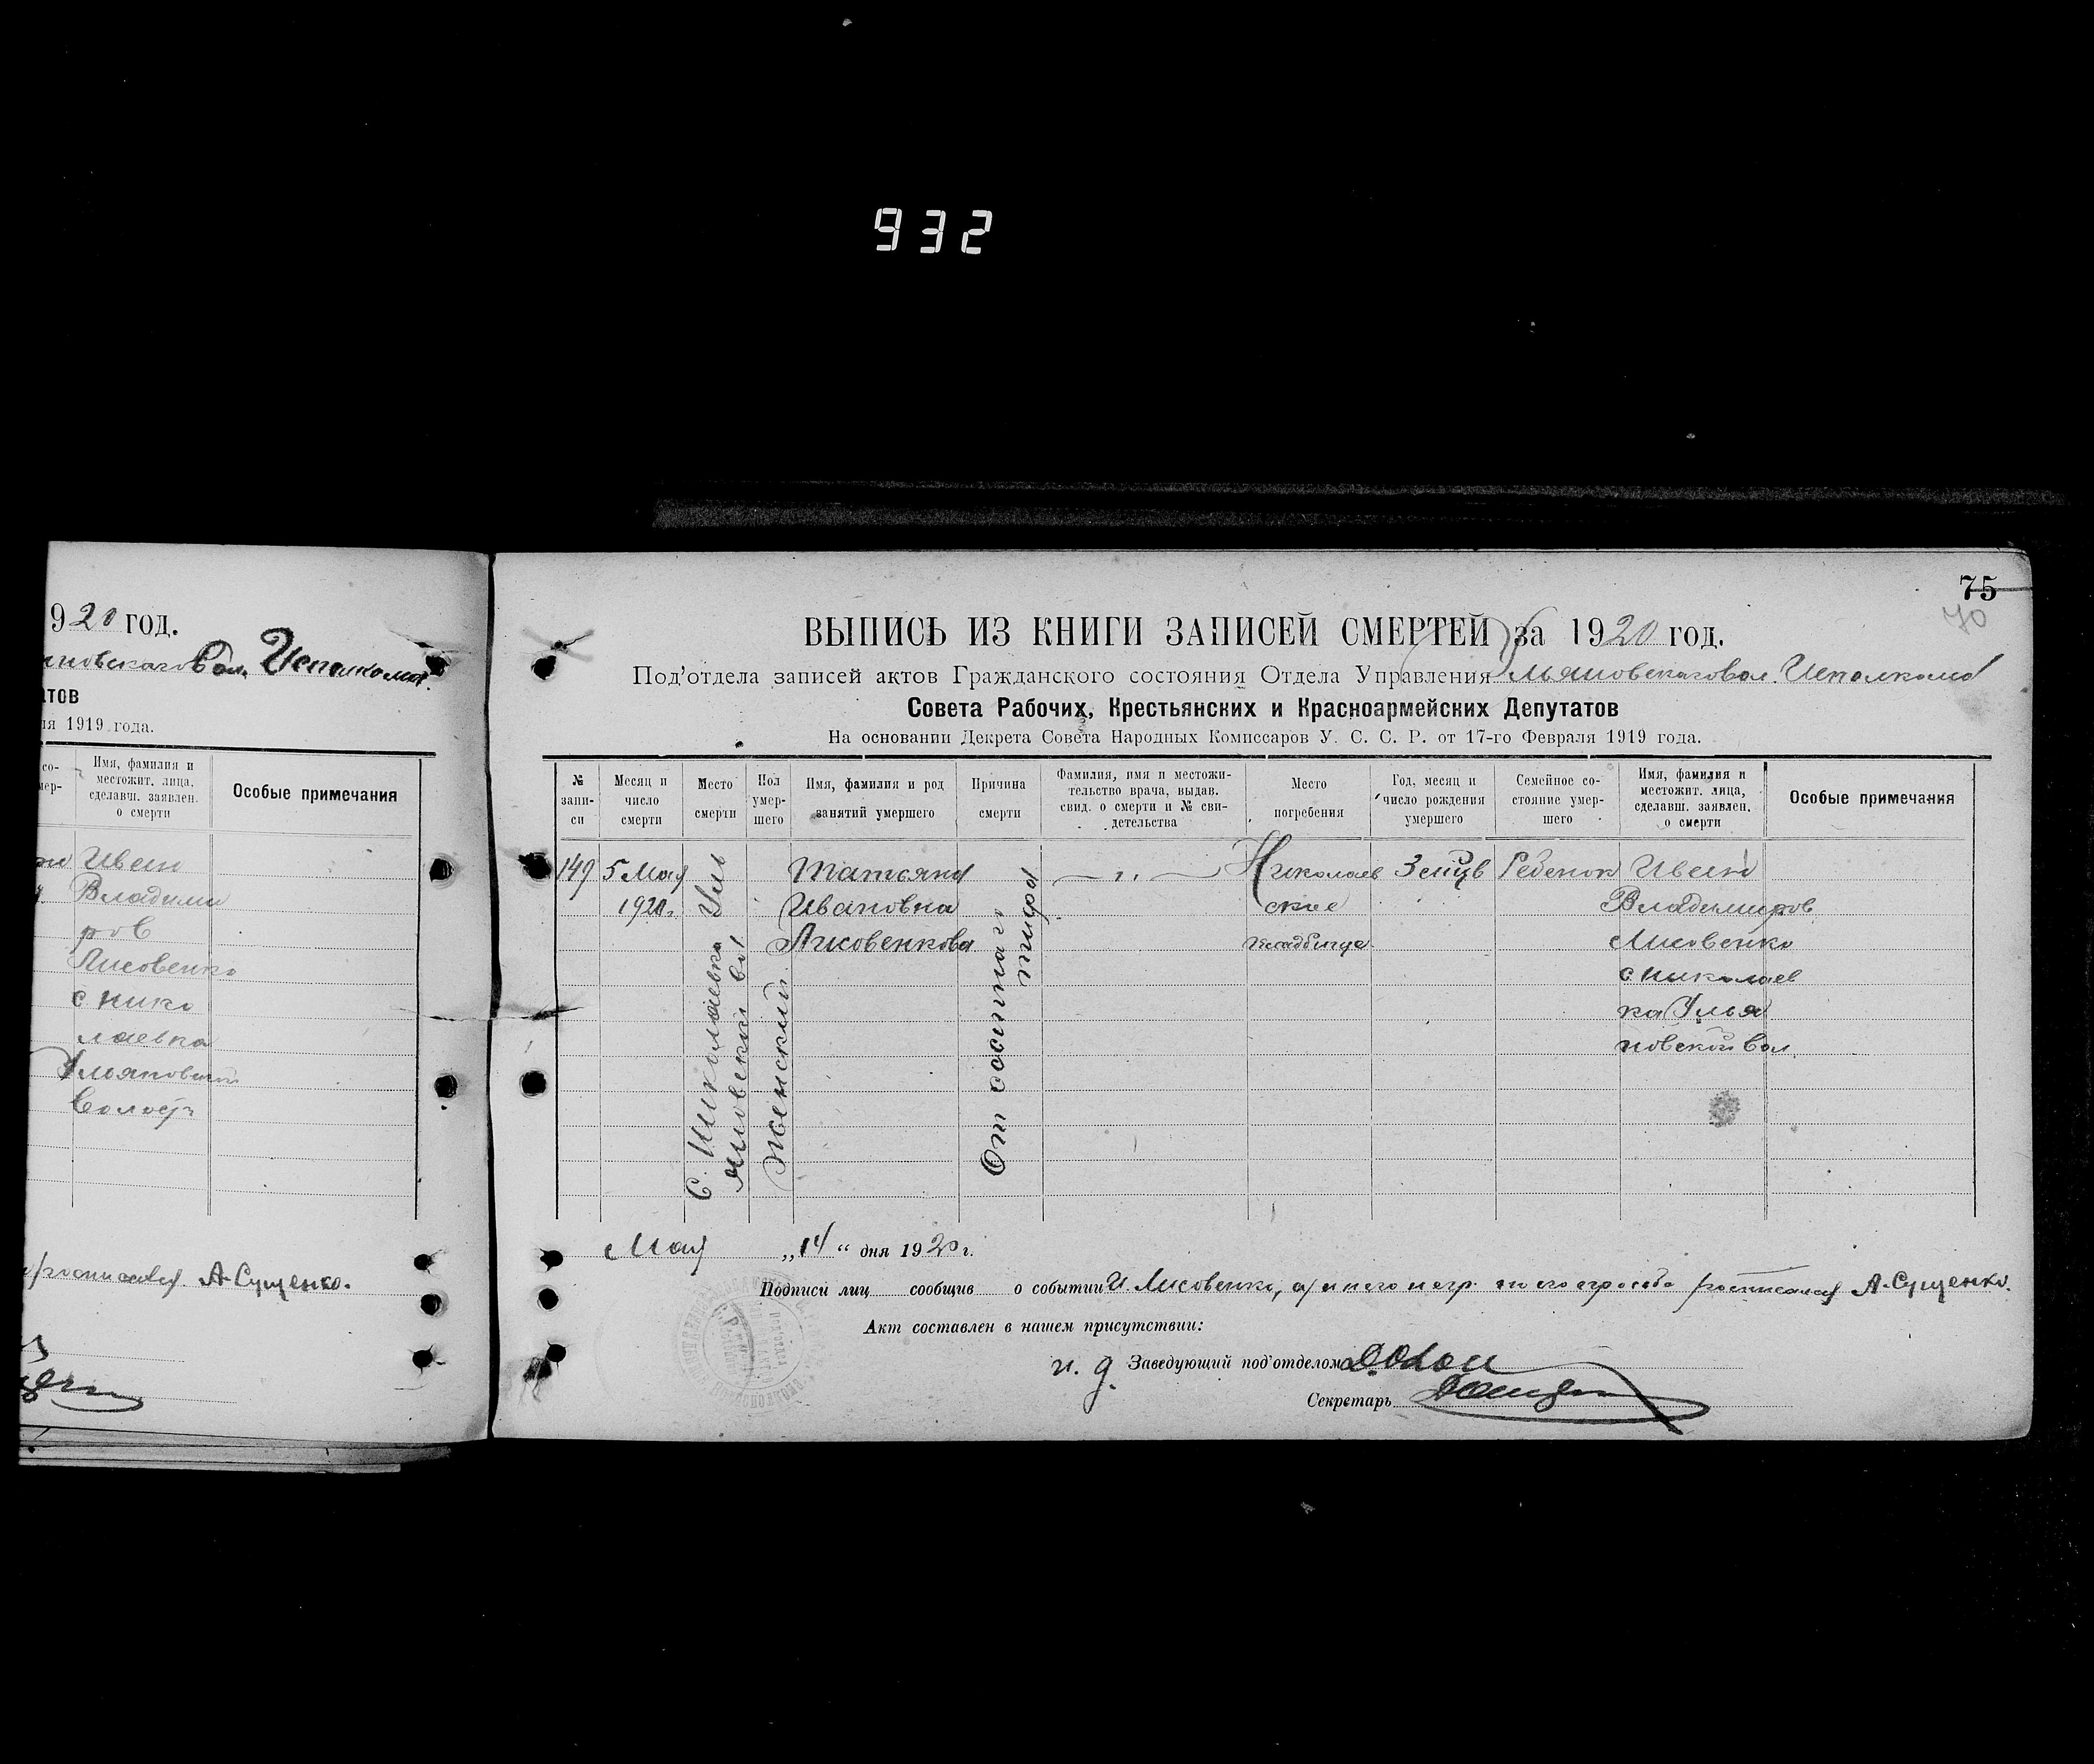 932
920 год.
Вол. Исполкома.
тов
ля 1919 года.
со-
мер-
Имя, фамилия и
местожит. лица,
сделавш. заявлен.
о смерти
Особые примечания
Иван
Владими
ров
Лисовенко
с. Нико
лаевка
Ульяновской
Волости
росписался А. Сущенко.
75
70
ВЫПИСЬ ИЗ КНИГИ ЗАПИСЕЙ СМЕРТЕЙ за 1920 год.
Под'отдела записей актов Гражданского состояния Отдела Управления Ульяновскаго вол. Исполкома
Совета Рабочих, Крестьянских и Красноармейских Депутатов
На основании Декрета Совета Народных Комиссаров У. С. С. Р. от 17-го Февраля 1919 года.
№
запи-
си
Месяц и
число
смерти
Место
смерти
Пол
умер-
шего
Имя, фамилия и род
занятий умершего
Причина
смерти
Фамилия, имя и местожи-
тельство врача, выдав.
свид. о смерти и № сви-
детельства
Место
погребения
Год, месяц и
число рождения
умершего
Семейное со-
стояние умер-
шего
Имя, фамилия и
местожит. лица,
сделавш. заявлен.
о смерти
Особые примечания
149
5 Мая
1920г.
С. Николаевка Уль
яновской вол
Женский
Татьяна
Ивановна
Лисовенкова
От сыпнаго
тифа
— „ —
Николаев
ское
кладбище
Ребенок
Иван
Владимиров
Лисовенко
с. Николаев
ка Улья
новской вол.
Мая „14“ дня 1920 г.
Подписи лиц сообщив о событии И. Лисовенко, а/ негр. по его просьбе росписался А. Сущенко.
Акт составлен в нашем присутствии:
и. д. Заведующий под'отделом
Секретарь